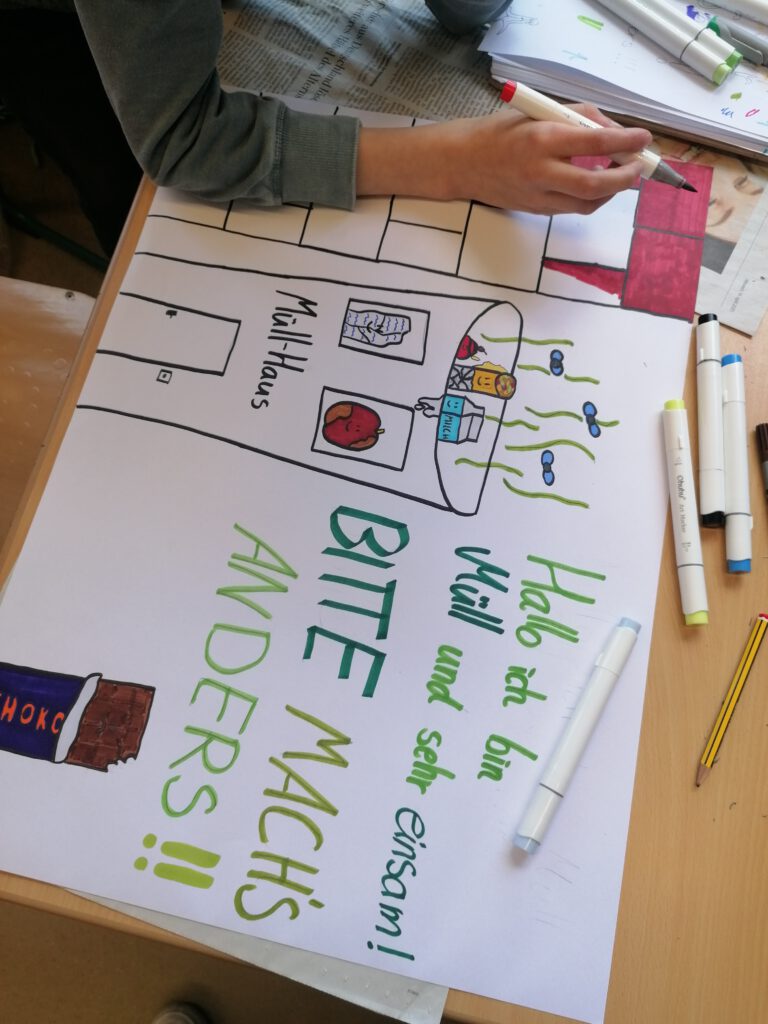 Hallo ich bin
Müll und sehr einsam!
BITTE MACH'S
ANDERS!!
Müll-Haus
MILCH
HOKO
Ohuhu